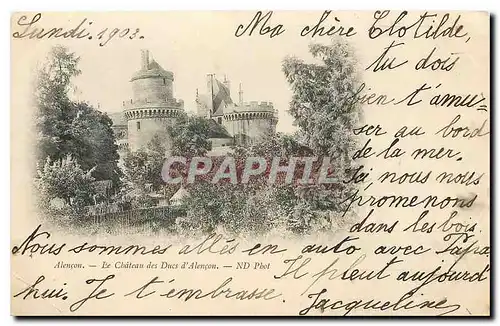 Lundi. 1903.
Ma chère Clotilde,
tu dois
bien t'amu-
ser au bord
de la mer.
Ici nous nous
promenons
dans les bois.
Nous sommes allés en auto avec Papa.
Alençon. - Le Château des Ducs d'Alençon. - ND Phot
Il pleut aujourd'
hui. Je t'embrasse.
Jacqueline
CPARAMA